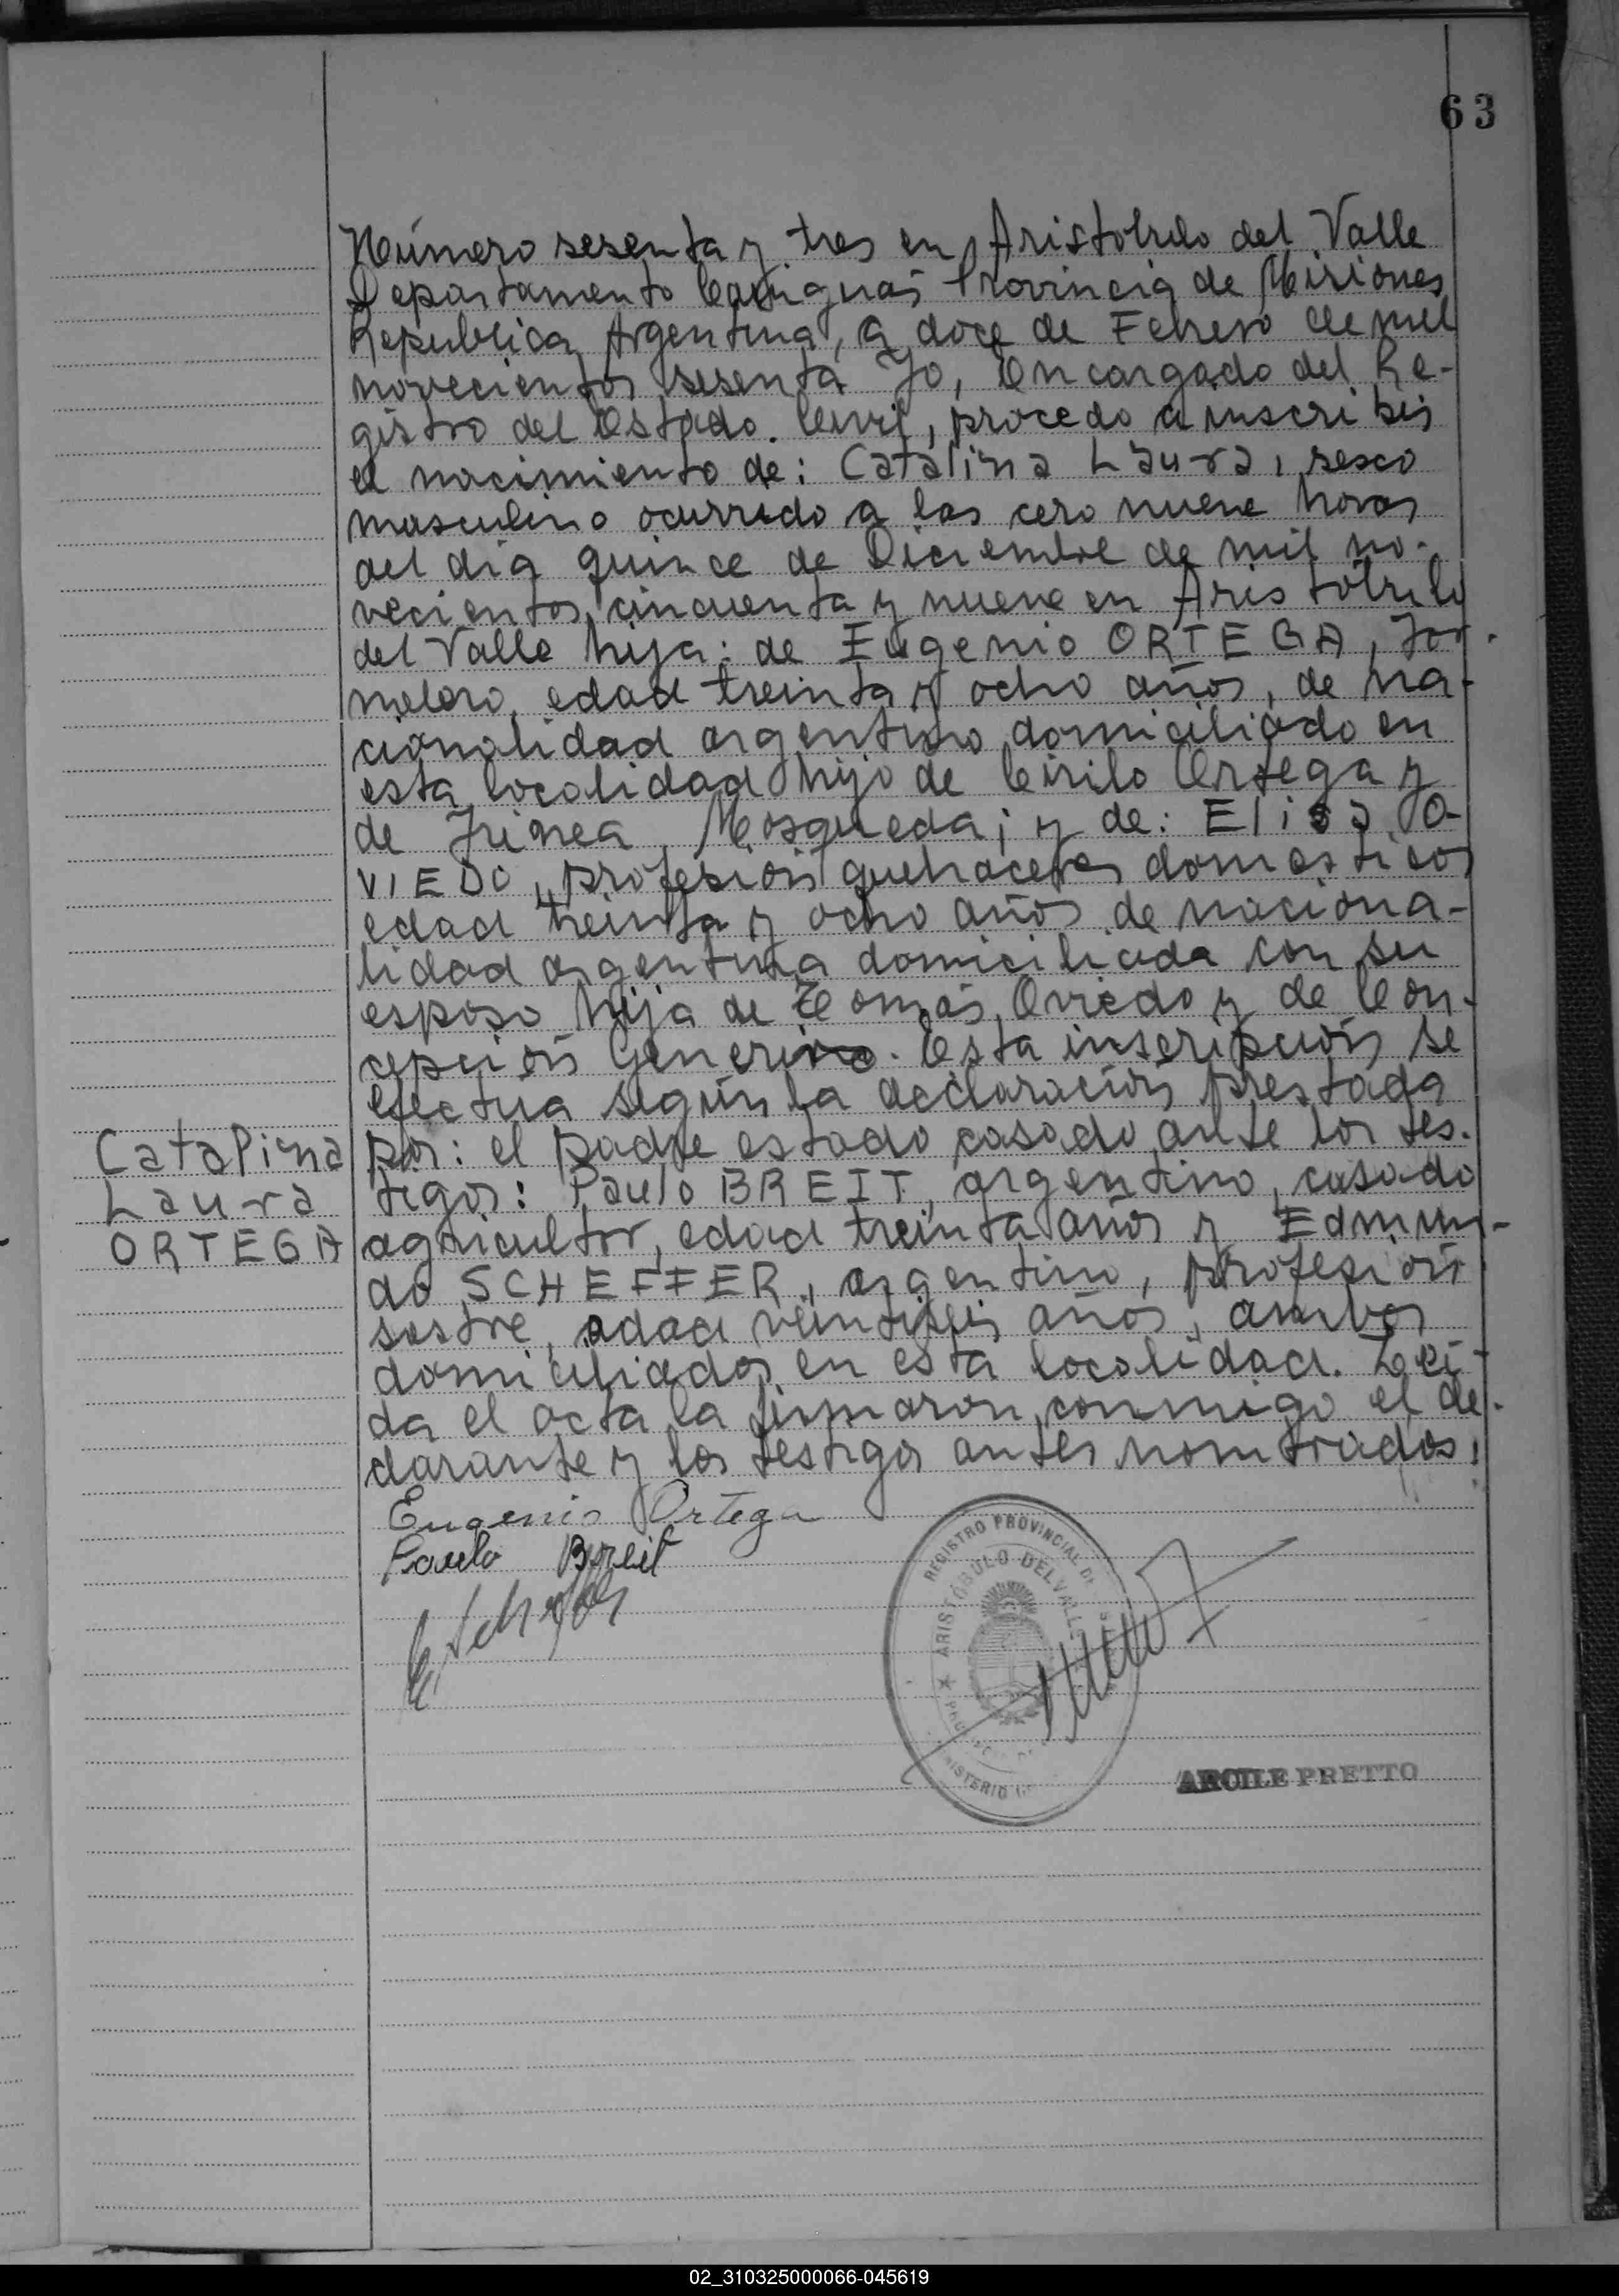 63
Número sesenta y tres en Aristobulo del Valle
Departamento Cainguás Provincia de Misiones
Republica Argentina, a doce de Febrero de mil
novecientos sesenta Yo, Encargado del Re-
gistro del Estado Civil, procedo a inscribir
el nacimiento de: Catalina Laura, sexo
masculino ocurrido a las cero nueve horas
del dia quince de Diciembre de mil no-
vecientos cincuenta y nueve en Aristóbulo
del Valle hija: de Eugenio ORTEGA, Jor-
nalero, edad treinta y ocho años, de na-
cionalidad argentino domiciliado en
esta localidad hijo de Cirilo Ortega y
de Mosqueda; y de: Elisa O-
VIEDO, profesión quehaceres domesticos
edad treinta y ocho años de naciona-
lidad argentina domiciliada con su
esposo hija de Tomás Oviedo y de Con-
cepción. Esta inscripción se
efectua según la declaración prestada
por: el padre estado casado ante los tes-
tigos: Paulo BREIT, argentino, casado
agricultor, edad treinta años y Edmun-
do SCHEFFER, argentino, profesión
sastre, edad veintiseis años, ambos
domiciliados en esta localidad. Lei-
da el acta la firmaron conmigo el de-
clarante y los testigos antes nombrados.
Catalina
Laura
ORTEGA
Eugenio Ortega
Paulo Breit
E Scheffer
REGISTRO PROVINCIAL DE
ARISTÓBULO DEL VALLE
ARCILE PRETTO
02_310325000066-045619